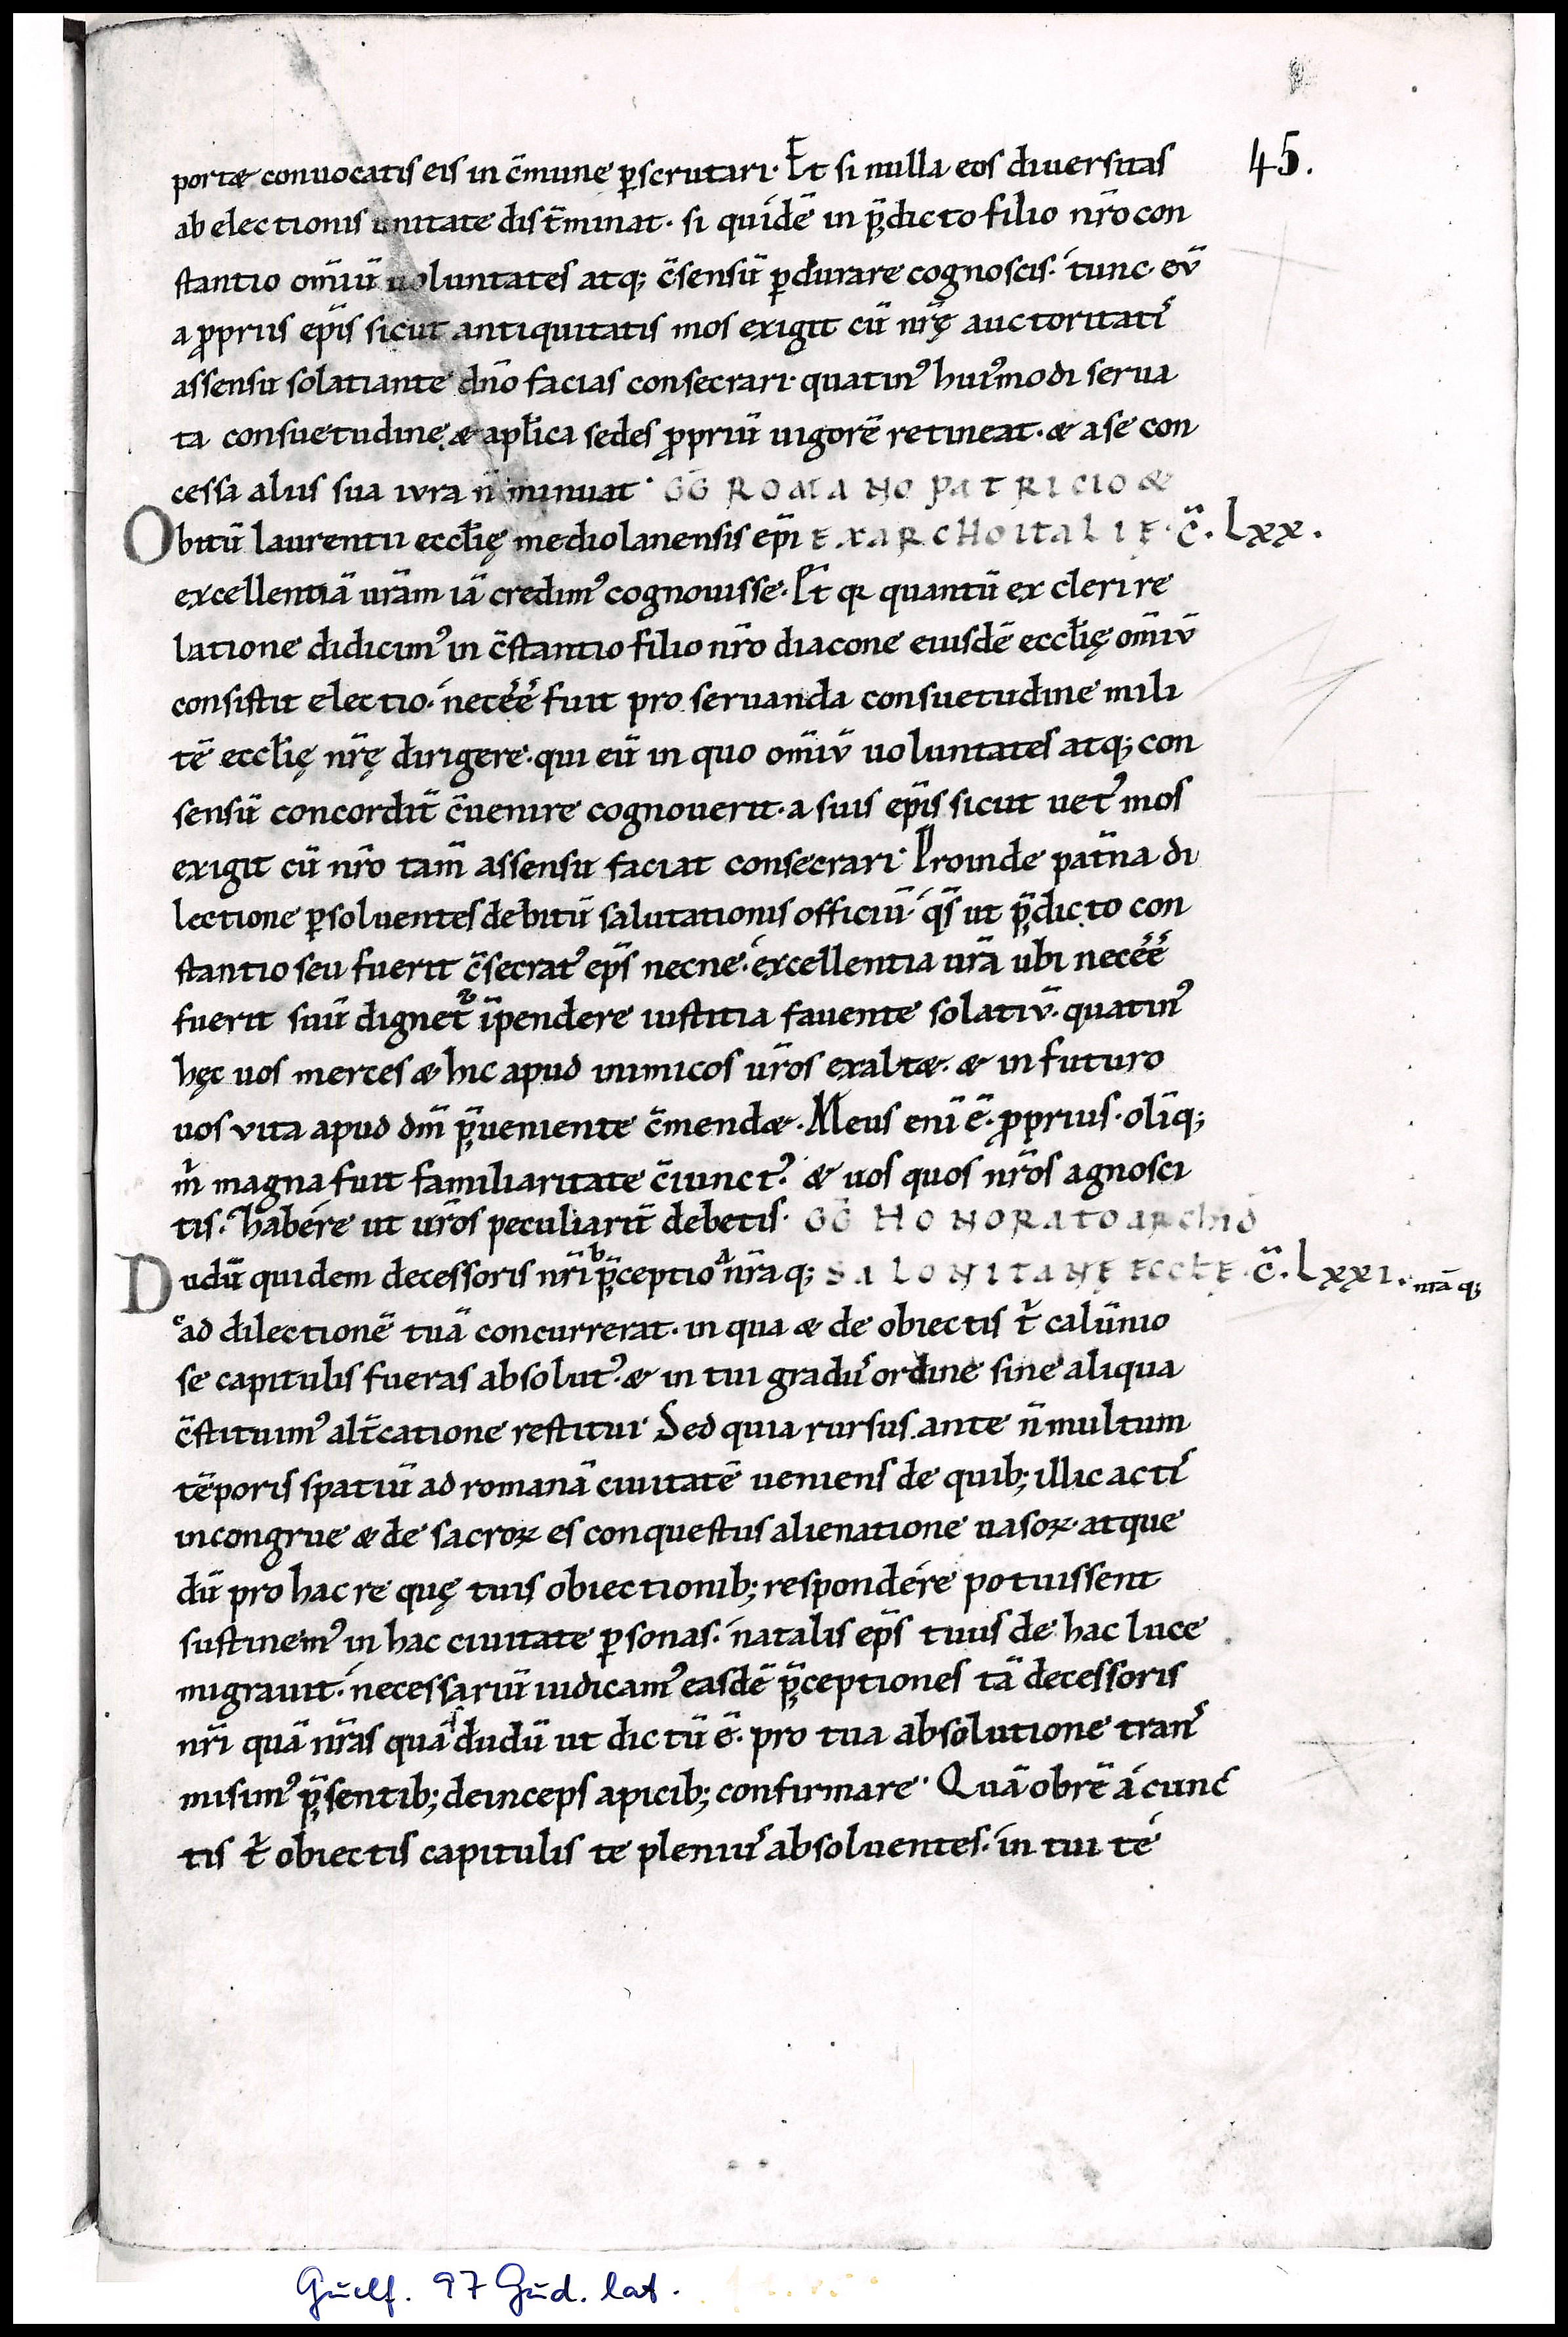 45.
portæ conuocatis eis in c̄mune p̱scrutari. Et si nulla eos diuersitas
ab electionis unitate dist̄minat. si quidē in p̄dicto filio nr̄o con
stantio om̄iū uoluntates atq; c̄sensū p̱durare cognoscis. tunc eū
a ꝓpriis ep̄is sicut antiquitatis mos exigit cū nr̄ę auctoritatis
assensu solatiante dn̄o facias consecrari. quatin᾽ hui᾽modi serua
ta consuetudine & apl̄ica sedes ꝓpriū uigorē retineat. & a se con
cessa aliis sua iura n̄ minuat. GḠ ROMANO PATRICIO &
Obitū laurentii eccl̄ię mediolanensis ep̄i EXARCHO ITALIĘ. c̄. Lxx.
excellentiā ur̄am iā credim᾽ cognouisse. Et qꝛ quantū ex cleri re
latione didicim᾽ in c̄stantio filio nr̄o diacone eiusdē eccl̄ię om̄iū
consistit electio. necēē fuit pro seruanda consuetudine mili
tē eccl̄ię nr̄ę dirigere. qui eū in quo om̄iū uoluntates atq; con
sensū concordit̄ c̄uenire cognouerit. a suis ep̄is sicut uet᾽ mos
exigit cū nr̄o tam̄ assensu faciat consecrari. Proinde pat̄na di
lectione p̱soluentes debitū salutationis officiū. q̄s ut p̄dicto con
stantio seu fuerit c̄secrat᾽ ep̄s necne. excellentia ur̄a ubi necēē
fuerit suū dignet᷑ īpendere iustitia fauente solatiū. quatin᾽
hęc uos merces & hic apud inimicos ur̄os exaltæ. & in futuro
uos vita apud dm̄ p̄ueniente c̄mendæ. Meus enī ē. ꝓprius. olīq;
m̄ magna fuit familiaritate c̄iunct᾽. & uos quos nr̄os agnosci
tis. habere ut ur̄os peculiarit̄ debetis. GḠ HONORATO ARCHID̄
Dudū quidem decessoris nr̄i p̄ceptio nr̄aq; SALONITANĘ ECCLĘ. c̄. Lxxi. nr̄aq;
ad dilectionē tuā concurrerat. in qua & de obiectis t᷑ calūnio
se capitulis fueras absolut᾽. & in tui gradus ordine sine aliqua
c̄stituim᾽ alt̄catione restitui. Sed quia rursus ante n̄ multum
tēporis spatiū ad romanā ciuitatē ueniens de quib; illic actis
incongrue & de sacroꝝ es conquestus alienatione uasoꝝ. atque
dū pro hac re quę tuis obiectionib; respondere potuissent
sustinem᾽ in hac ciuitate p̱sonas. natalis ep̄s tuus de hac luce
migrauit. necessariū iudicam᾽ easdē p̄ceptiones tā decessoris
nr̄i quā nr̄as quas dudū ut dictū ē. pro tua absolutione trans
misim᾽ p̄sentib; deinceps apicib; confirmare. Quā obrē a cunc
tis t᷑ obiectis capitulis te plenius absoluentes. in tui te
Guelf. 97 Gud. lat.